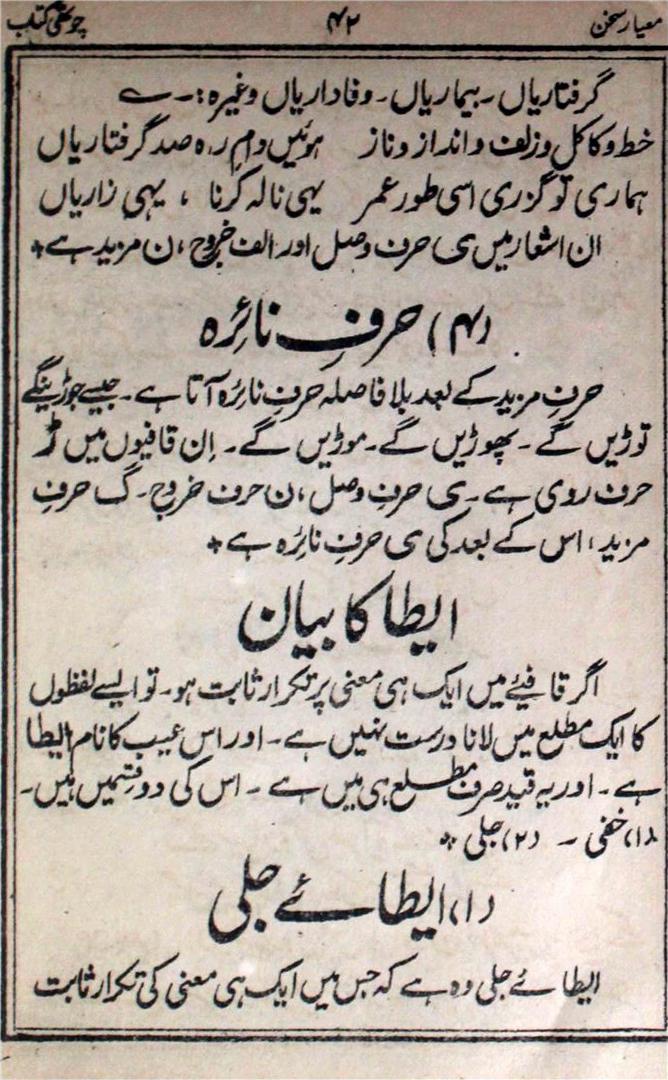 معیار سخن ۴۲ چوتھی کتاب
گرفتاریاں ـ بیماریاں ـ وفاداریاں وغیرہ :ـ ے
خط و کاکل و زلف و انداز و ناز ہوئیں دامِ رہ صد گرفتاریاں
ہماری تو گزری اسی طور عمر یہی نالہ کرنا ، یہی زاریاں
ان اشعار میں ی حرف وصل اور الف خروج ، ن مزید ہے ٭
(۴) حرفِ نائرہ
حرفِ مزید کے بعد بلا فاصلہ حرفِ نائرہ آتا ہے ـ جیسے جوڑینگے
توڑیں گے ـ پھوڑیں گے ـ موڑیں گے ـ اِن قافیوں میں ڑ
حرف روی ہے ـ ی حرفِ وصل ، ن حرف خروج ـ گ حرفِ
مزید ، اس کے بعد کی ی حرفِ نائرہ ہے ٭
ایطا کا بیان
اگر قافیئے میں ایک ہی معنی پر تکرار ثابت ہو ـ تو ایسے لفظوں
کا ایک مطلع میں لانا درست نہیں ہے ـ اور اس عیب کا نام ایطا
ہے ـ اور یہ قید صرف مطلع ہی میں ہے ـ اس کی دو قسمیں ہیں ـ
(۱) خفی ـ (۲) جلی ٭
(۱) ایطائے جلی
ایطائے جلی وہ ہے کہ جس میں ایک ہی معنی کی تکرار ثابت